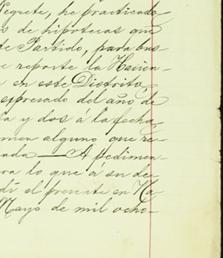 Negrete, he practicado
s de hipotecas que
de Partido, para bus
e reporte la Hacien
en este Distrito,
espresado del año de
ta y dos á la fecha,
men alguno que re
tada — A pedimen
ra lo que á su de
dí el presente en
Mayo de mil ocho-